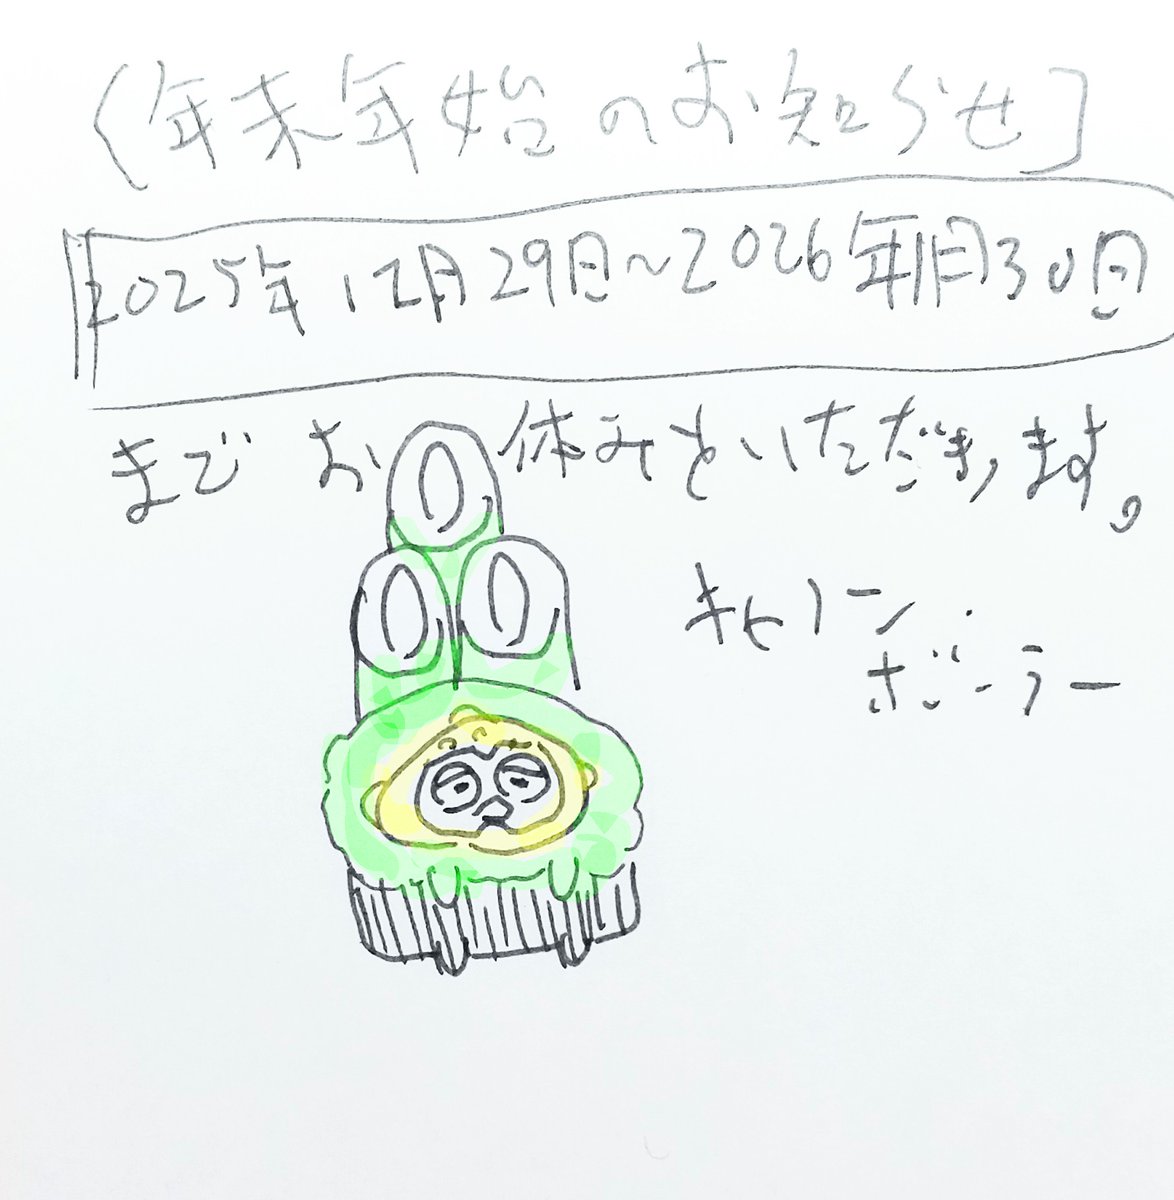 〈年末年始のお知らせ]
2025年12月29日~2026年1月30日
までお休みといただきます。
キャリーン
ボーラー